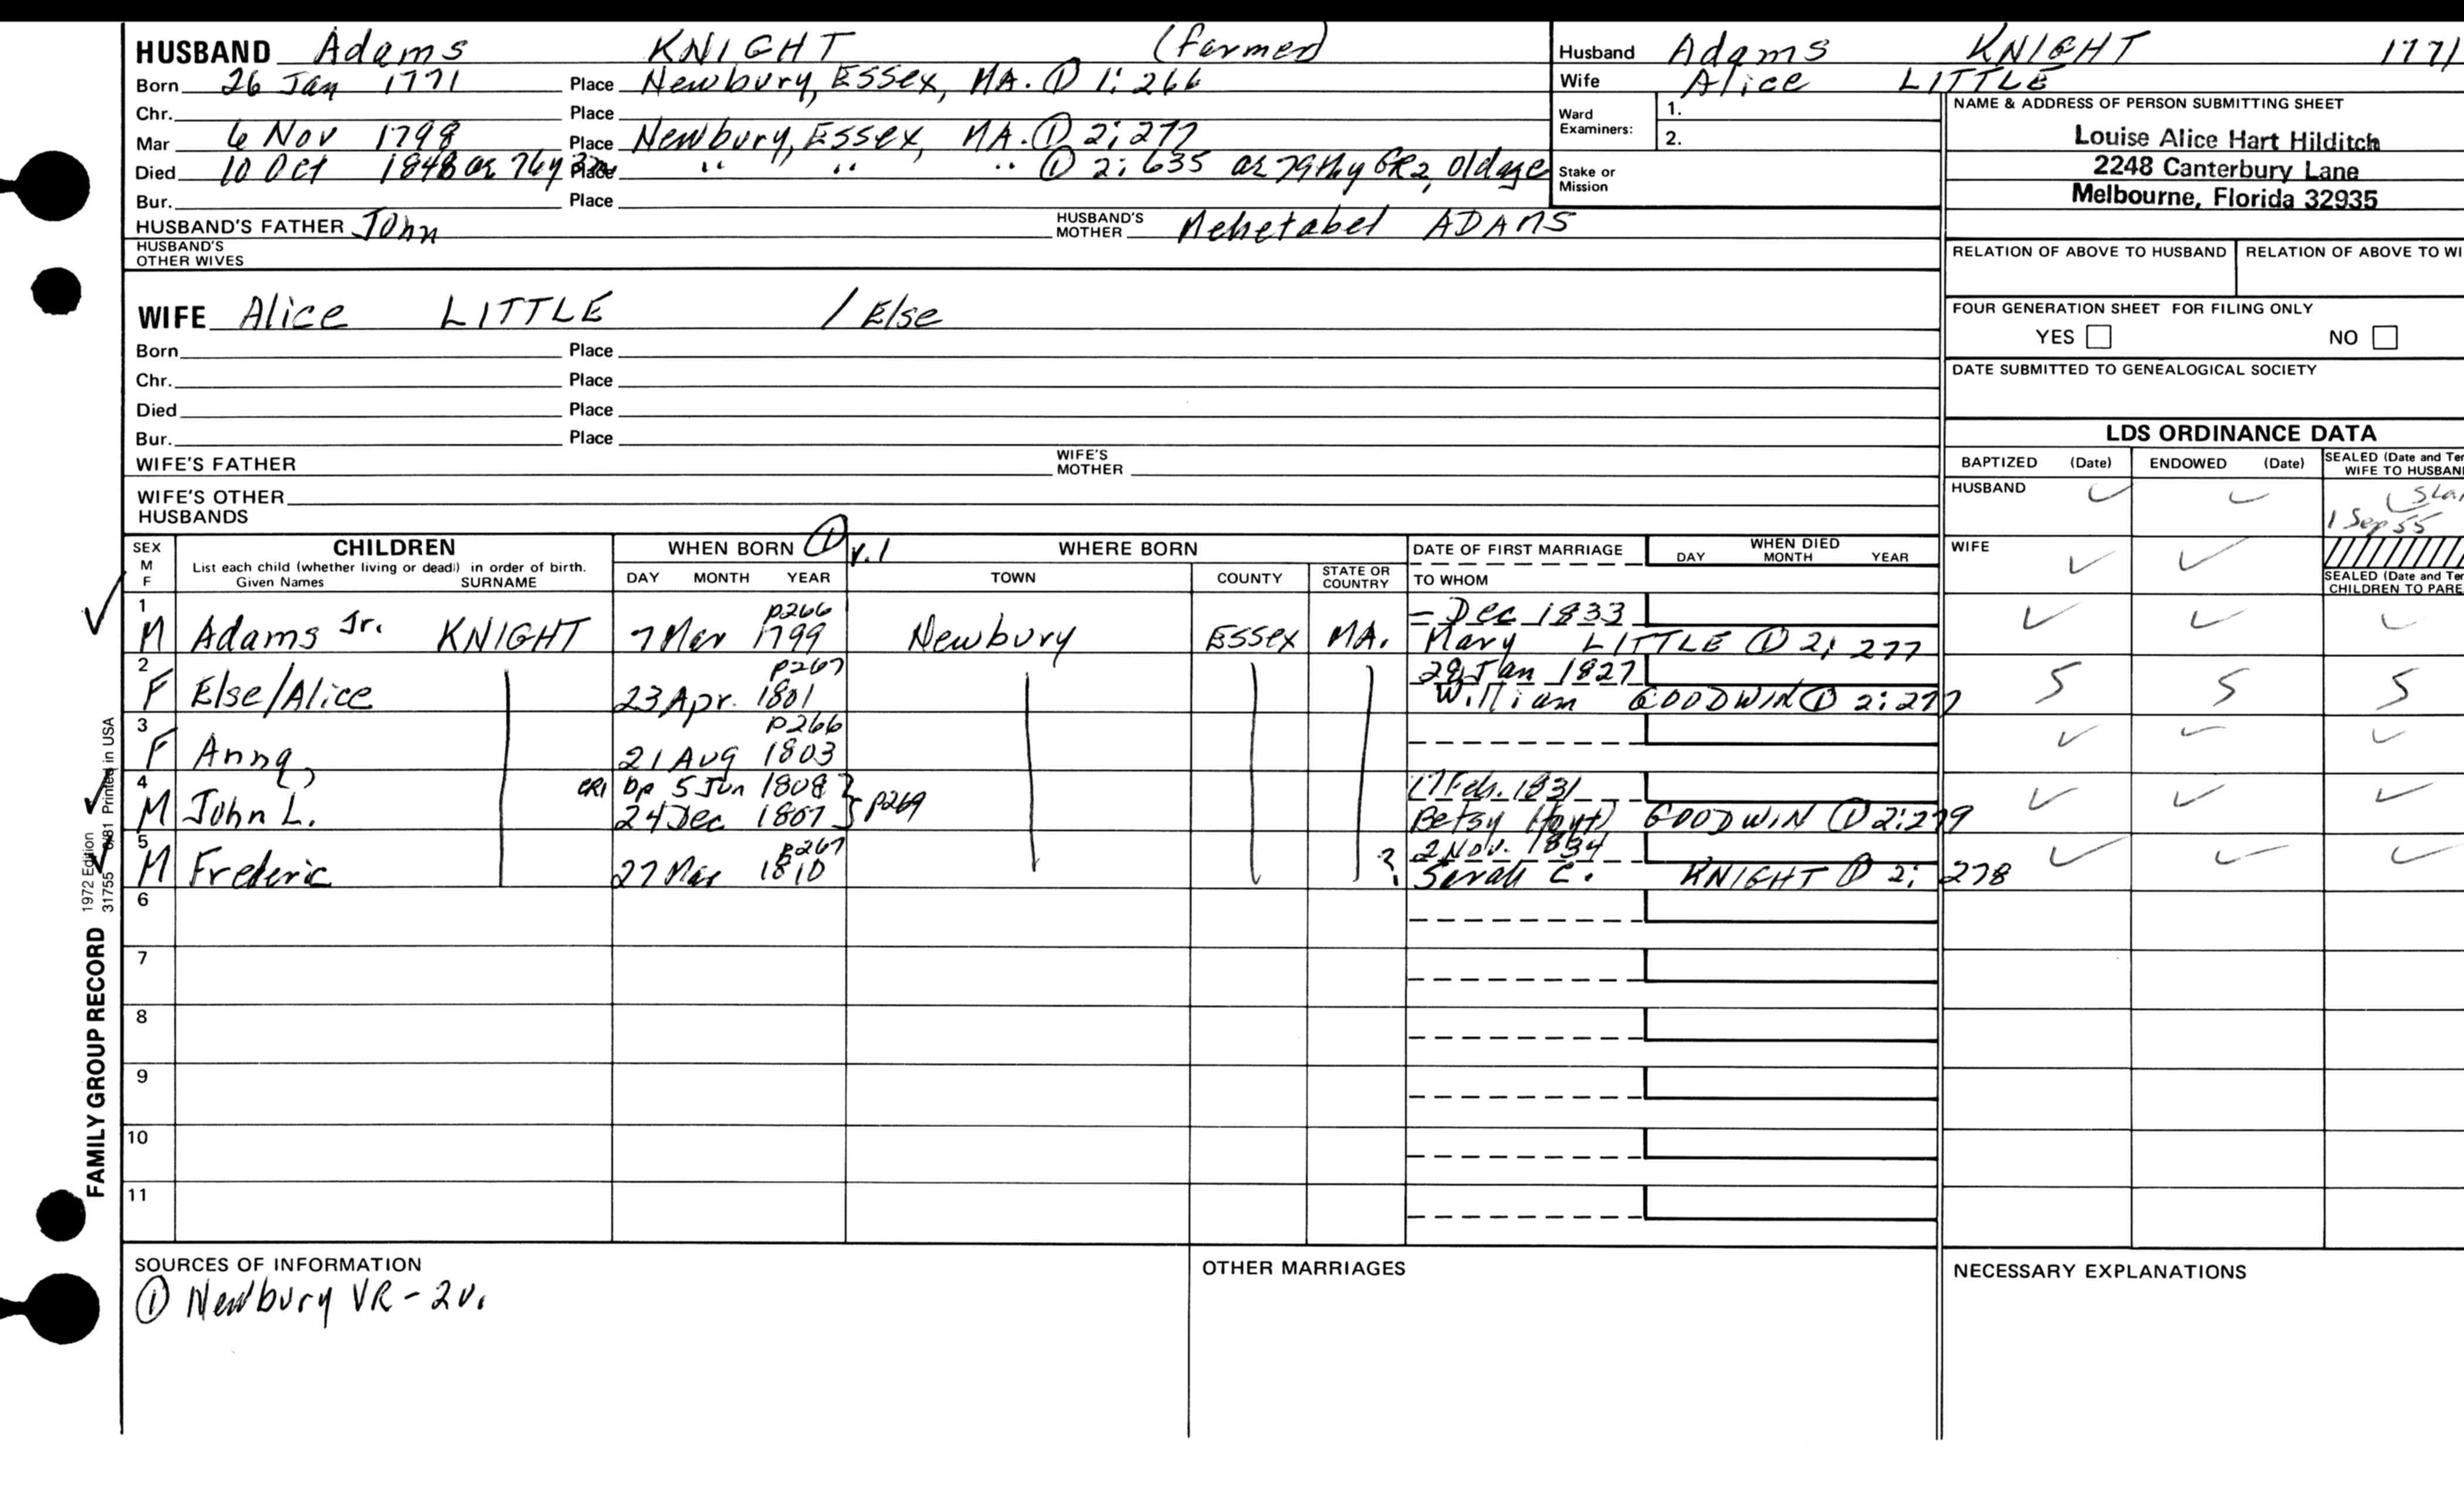 HUSBAND Adams KNIGHT (farmer)
Born 26 Jan 1771 Place Newbury, Essex, MA. ① 1: 266
Chr. Place
Mar 6 Nov 1798 Place Newbury, Essex, MA. ① 2: 277
Died 10 Oct 1848 ae 76y Place " " " ① 2: 635 ae GR2, old age
Bur. Place
HUSBAND'S FATHER John HUSBAND'S MOTHER Mehetabel ADAMS
HUSBAND'S OTHER WIVES
WIFE Alice LITTLE / Else
Born Place
Chr. Place
Died Place
Bur. Place
WIFE'S FATHER WIFE'S MOTHER
WIFE'S OTHER HUSBANDS
Husband Adams KNIGHT 1771
Wife Alice LITTLE
Ward Examiners: 1.
2.
Stake or Mission
NAME & ADDRESS OF PERSON SUBMITTING SHEET
Louise Alice Hart Hilditch
2248 Canterbury Lane
Melbourne, Florida 32935
RELATION OF ABOVE TO HUSBAND RELATION OF ABOVE TO WI
FOUR GENERATION SHEET FOR FILING ONLY
YES NO
DATE SUBMITTED TO GENEALOGICAL SOCIETY
LDS ORDINANCE DATA
BAPTIZED (Date) ENDOWED (Date) SEALED (Date and Tem
WIFE TO HUSBAN
HUSBAND ✓ ✓
1 Sep 55
WIFE ✓ ✓
SEALED (Date and Tem
CHILDREN TO PARE
SEX M F CHILDREN WHEN BORN ① v.1 WHERE BORN DATE OF FIRST MARRIAGE WHEN DIED
List each child (whether living or dead) in order of birth.
Given Names SURNAME DAY MONTH YEAR TOWN COUNTY STATE OR COUNTRY TO WHOM DAY MONTH YEAR
1 p266 – Dec 1833
M Adams Jr. KNIGHT 7 Mar 1799 Newbury Essex MA. Mary LITTLE ① 2: 277 ✓ ✓ ✓
2 p267 28 Jan 1827
F Else/Alice 23 Apr. 1801 William GOODWIN ① 2: 277 S S S
3 p266
F Anna, 21 Aug 1803 ✓ ✓ ✓
4 CR1 bp 5 Jun 1808 } p269 17 Feb. 1831
M John L. 24 Dec 1807 Betsy (Hoyt) GOODWIN ① 2: 279 ✓ ✓ ✓
5 p267 2 Nov. 1834
M Frederic 27 Mar 1810 ? Sarah C. KNIGHT ① 2: 278 ✓ ✓ ✓
6
7
8
9
10
11
SOURCES OF INFORMATION
① Newbury VR - 2v.
OTHER MARRIAGES
NECESSARY EXPLANATIONS
FAMILY GROUP RECORD 1972 Edition
31755 Printed in USA